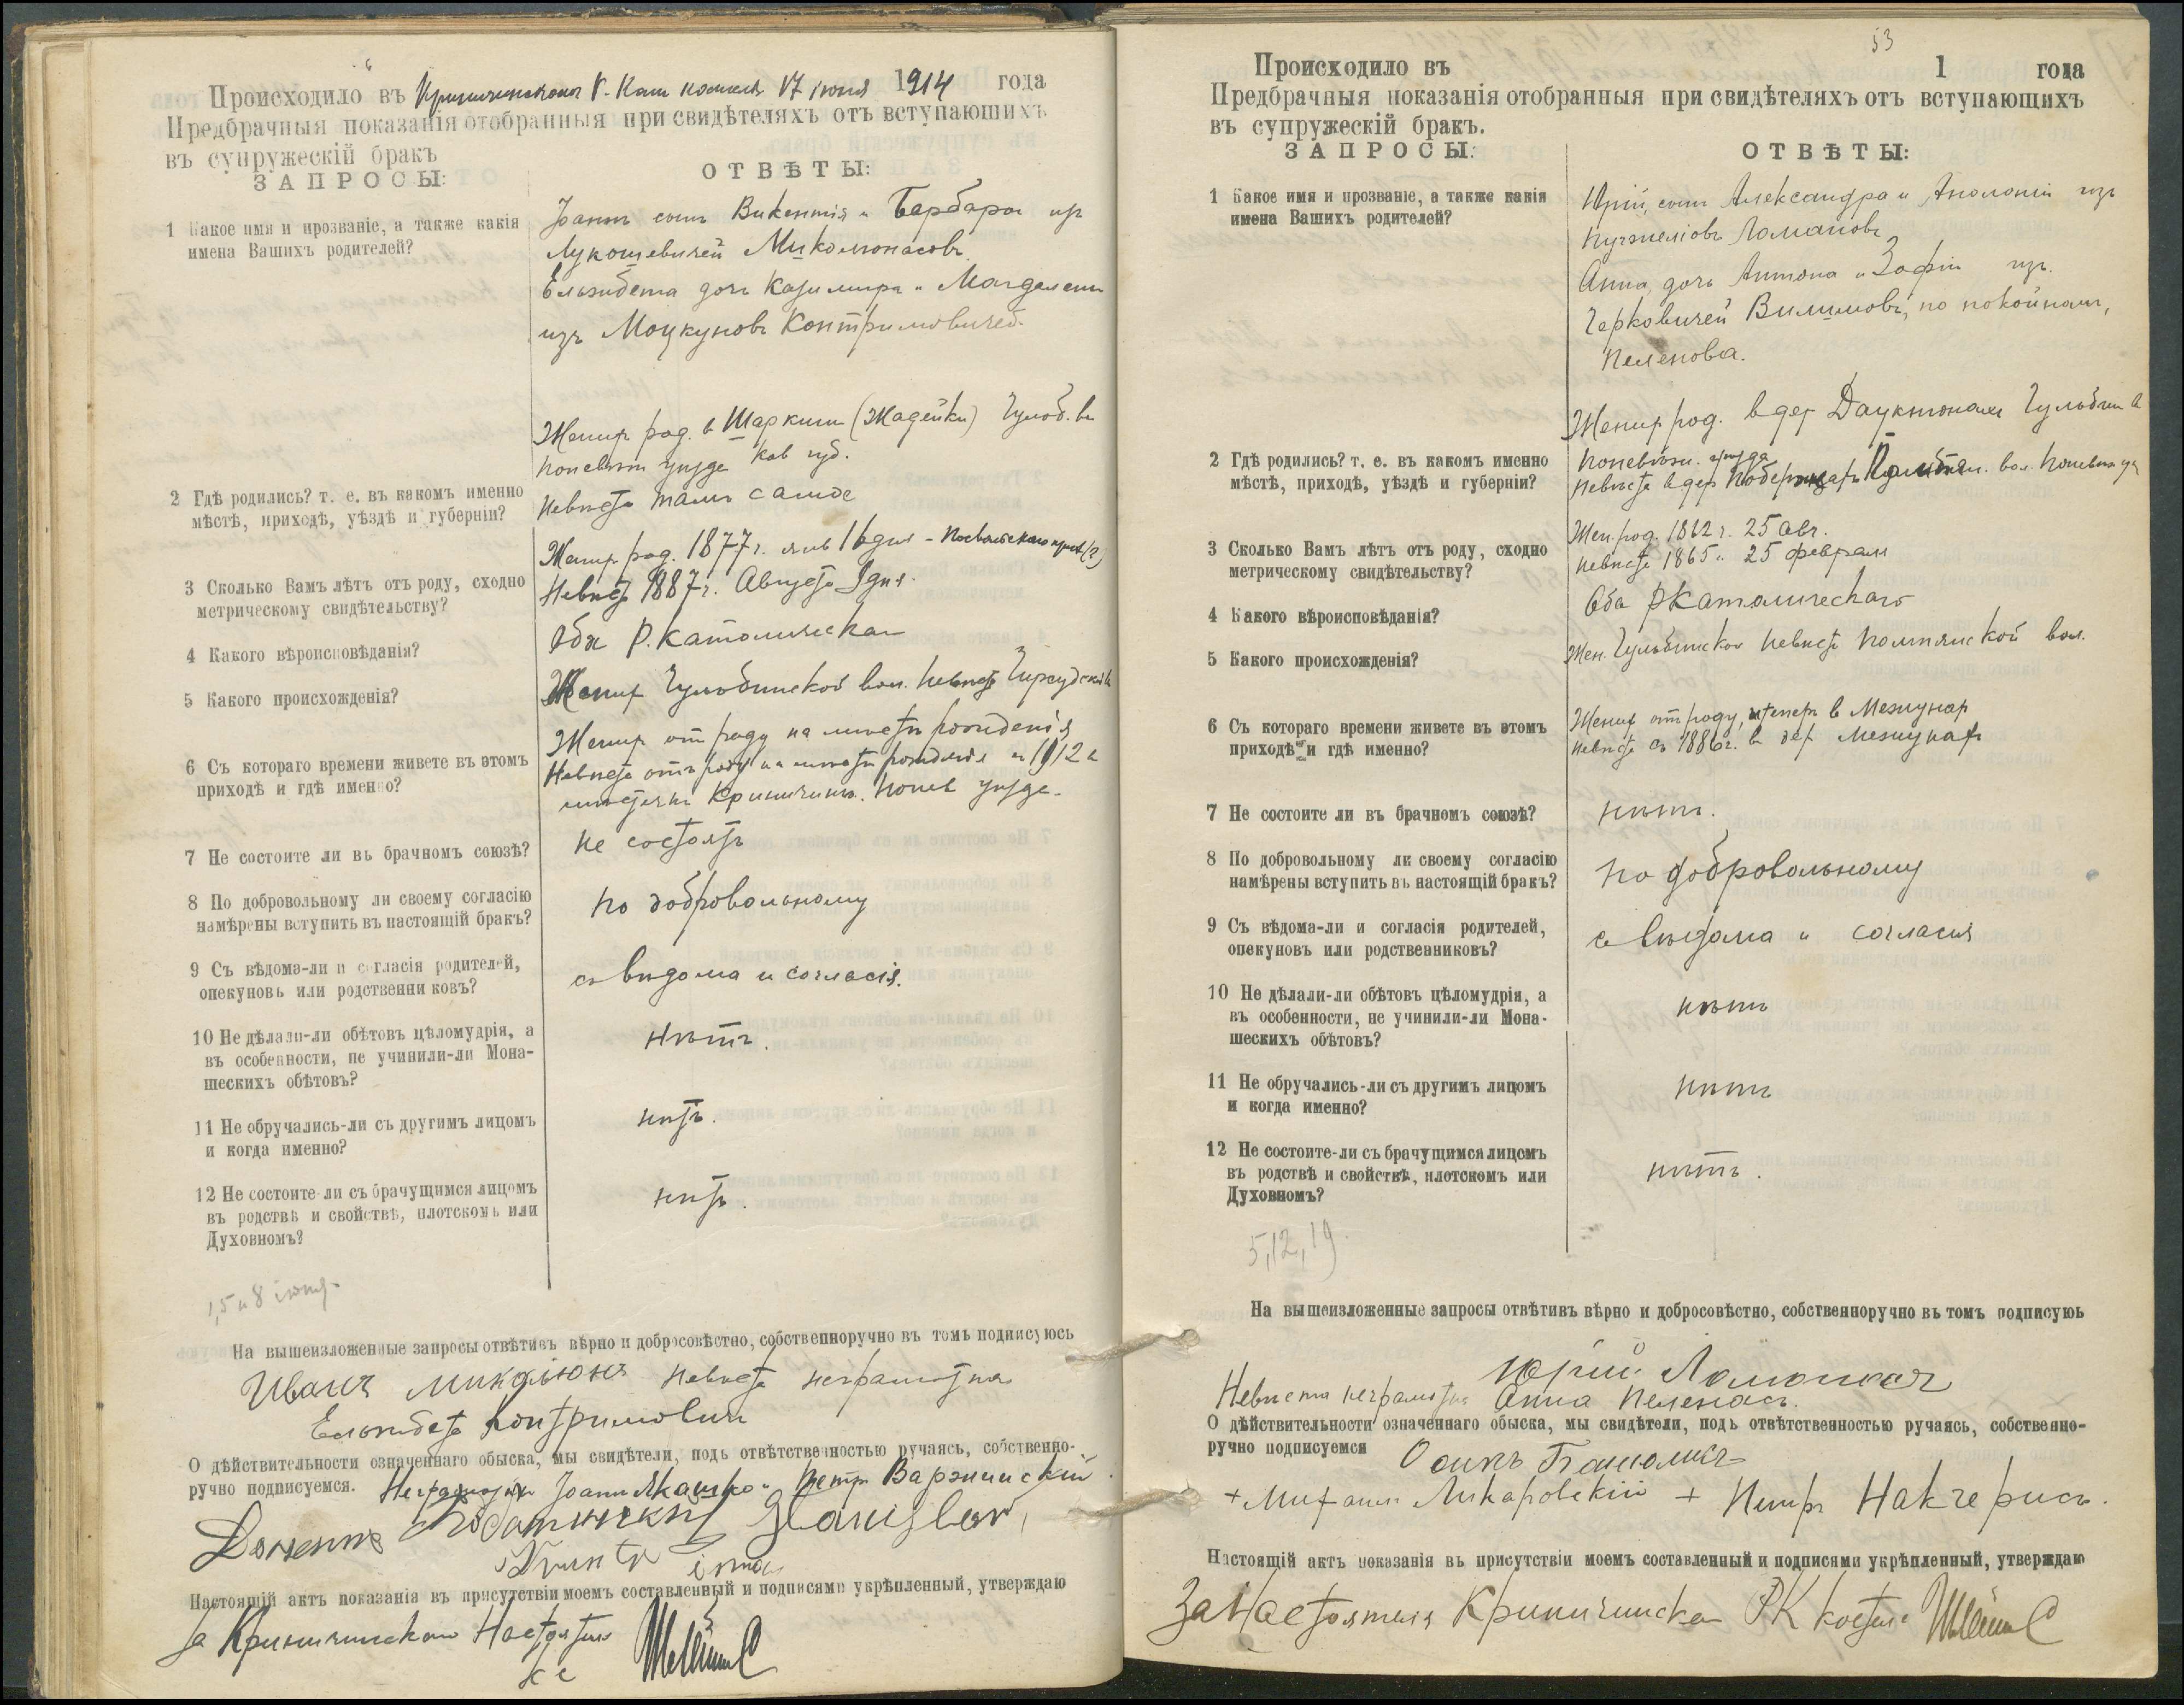 Происходило въ Криничинскомъ Р-Кат костелѣ 17 іюня 1914 года
Предбрачныя показанія отобранныя при свидѣтеляхъ отъ вступающихъ
въ супружескій бракъ
ЗАПРОСЫ:
ОТВѢТЫ:
1 Какое имя и прозваніе, а также какія
имена Вашихъ родителей?
Іоаннъ сынъ Викентія и Барбары изъ
Лукошевичей Миколюнасовъ
Ельжбета дочь Казимира и Магдалены
изъ Моцкуновъ Контримовичей.
2 Гдѣ родились? т. е. въ какомъ именно
мѣстѣ, приходѣ, уѣздѣ и губерніи?
Женихъ род. в (Жадейки)
Поневѣж уѣзде Ков губ.
Невѣста тамъ самое
3 Сколько Вамъ лѣтъ отъ роду, сходно
метрическому свидѣтельству?
Женихъ род. 1877 г. янв 16 дня -
Невѣст 1887 г. Августа 9 дня.
4 Какого вѣроисповѣданія?
Оба Р. Католическаго
5 Какого происхожденія?
Женихъ Гульбинской вол. Невѣста
6 Съ котораго времени живете въ этомъ
приходѣ и гдѣ именно?
Женихъ отъ роду на мѣстѣ рожденія
Невѣста отъ роду на мѣстѣ рожденія и 1912 в
мѣстечкѣ Криничинъ. Понев уѣзде.
7 Не состоите ли въ брачномъ союзѣ?
Не состоятъ
8 По добровольному ли своему согласію
намѣрены вступить въ настоящій бракъ?
По добровольному
9 Съ вѣдома-ли и согласія родителей,
опекуновъ или родственниковъ?
съ вѣдома и согласія.
10 Не дѣлали-ли обѣтовъ цѣломудрія, а
въ особенности, не учинили-ли Мона-
шескихъ обѣтовъ?
Нѣтъ.
11 Не обручались-ли съ другимъ лицомъ
и когда именно?
нѣтъ.
12 Не состоите-ли съ брачущимся лицомъ
въ родствѣ и свойствѣ, плотскомъ или
Духовномъ?
нѣтъ.
1, 5 и 8 іюня
На вышеизложенные запросы отвѣтивъ вѣрно и добросовѣстно, собственноручно въ томъ подписуюсь
Иванъ Миколюнъ Невѣста неграмотна
Ельжбета Контримовичъ
О дѣйствительности означеннаго обыска, мы свидѣтели, подъ отвѣтственностью ручаясь, собственно-
ручно подписуемся. Неграмотн Іоаннъ Петръ
Настоящій актъ показанія въ присутствіи моемъ составленный и подписями укрѣпленный, утверждаю
За Криничинскаго Настоятеля
53
Происходило въ 1 года
Предбрачныя показанія отобранныя при свидѣтеляхъ отъ вступающихъ
въ супружескій бракъ.
ЗАПРОСЫ:
ОТВѢТЫ:
1 Какое имя и прозваніе, а также какія
имена Вашихъ родителей?
Юрій, сынъ Александра и Аполоніи изъ
Ломановъ
Анна, дочь Антона и Зофіи изъ
по покойномъ,
Пеленова.
2 Гдѣ родились? т. е. въ какомъ именно
мѣстѣ, приходѣ, уѣздѣ и губерніи?
Женихъ род. в дер Гульбин в
Поневѣж. уѣзда
Невѣста в дер вол. Поневѣж у
3 Сколько Вамъ лѣтъ отъ роду, сходно
метрическому свидѣтельству?
Жен. род. 1862 г. 25 авг.
Невѣста 1865 г. 25 февраля
4 Какого вѣроисповѣданія?
Оба РКатолическаго
5 Какого происхожденія?
Жен. Гульбинской Невѣста Помпянской вол.
6 Съ котораго времени живете въ этомъ
приходѣ и гдѣ именно?
Женихъ отъ роду, и теперь в
Невѣста съ 1886 г. в дер
7 Не состоите ли въ брачномъ союзѣ?
нѣтъ.
8 По добровольному ли своему согласію
намѣрены вступить въ настоящій бракъ?
по добровольному
9 Съ вѣдома-ли и согласія родителей,
опекуновъ или родственниковъ?
с вѣдома и согласія
10 Не дѣлали-ли обѣтовъ цѣломудрія, а
въ особенности, не учинили-ли Мона-
шескихъ обѣтовъ?
нѣтъ
11 Не обручались-ли съ другимъ лицомъ
и когда именно?
нѣтъ
12 Не состоите-ли съ брачущимся лицомъ
въ родствѣ и свойствѣ, плотскомъ или
Духовномъ?
нѣтъ.
5, 12, 19.
На вышеизложенные запросы отвѣтивъ вѣрно и добросовѣстно, собственноручно въ томъ подписуюь
Юрій
Невѣста неграмотна Анна Пеленасъ.
О дѣйствительности означеннаго обыска, мы свидѣтели, подъ отвѣтственностью ручаясь, собственно-
ручно подписуемся Осипъ
+ Михаилъ Макаровскій + Петръ Накчерисъ.
Настоящій актъ показанія въ присутствіи моемъ составленный и подписями укрѣпленный, утверждаю
За Настоятеля Криничинска РК костела